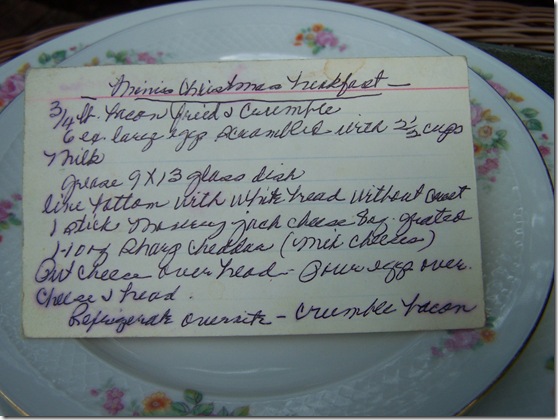 - Mimis Christmas Breakfast -
3/4 lb. bacon fried & Crumble
6 ea. large eggs scrambled with 2 1/2 cups
Milk
Grease 9 X 13 glass dish
line bottom with white bread without crust
1 stick Monterey jack cheese 8oz. grated
1-10oz Sharp Cheddar (mix cheeses)
Put Cheese over bread - Pour eggs over
Cheese & bread.
Refrigerate overnite - crumble bacon